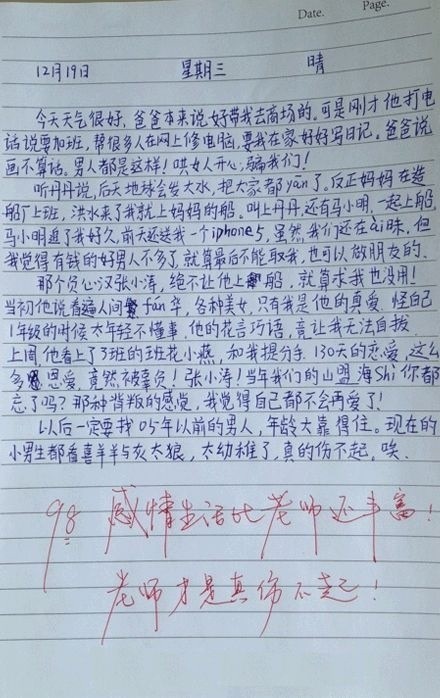 Date.
Page.
12月19日 星期三 晴
今天天气很好,爸爸本来说好带我去商场的。可是刚才他打电
话说要加班,帮很多人在网上修电脑,要我在家好好写日记。爸爸说
画不算话。男人都是这样!哄女人开心,骗我们!
听丹丹说,后天地球会发大水,把大家都yān了。反正妈妈在造
船厂上班,洪水来了我就上妈妈的船。叫上丹丹,还有马小明,一起上船,
马小明追了我好久,前天还送我一个iphone5,虽然我们还在ai昧,但
我觉得有钱的好男人不多了,就算最后不能取我,也可以做朋友的。
那个负心汉张小涛,绝不让他上船,就算求我也没用!
当初他说看遍人间fán华,各种美女,只有我是他的真爱,怪自己
1年级的时候太年轻不懂事,他的花言巧语,竟让我无法自拔
上周他看上了3班的班花小燕,和我提分手,130天的恋爱,这么
多恩爱,竟然被辜负!张小涛!当年我们的山盟海Shi你都
忘了吗?那种背叛的感觉,我觉得自己都不会再爱了!
以后一定要找05年以前的男人,年龄大靠得住。现在的
小男生都看喜羊羊与灰太狼,太幼稚了,真的伤不起,唉.
98 感情生活比老师还丰富!
老师才是真伤不起!